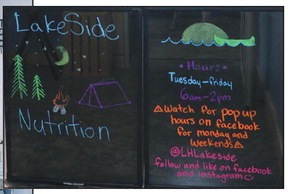 LakeSide
Nutrition
Hours
Tuesday-friday
6am-2pm
Watch for pop up
hours on facebook
for monday and
Weekends
@LHLakeside
follow and like on facebook
and instagram